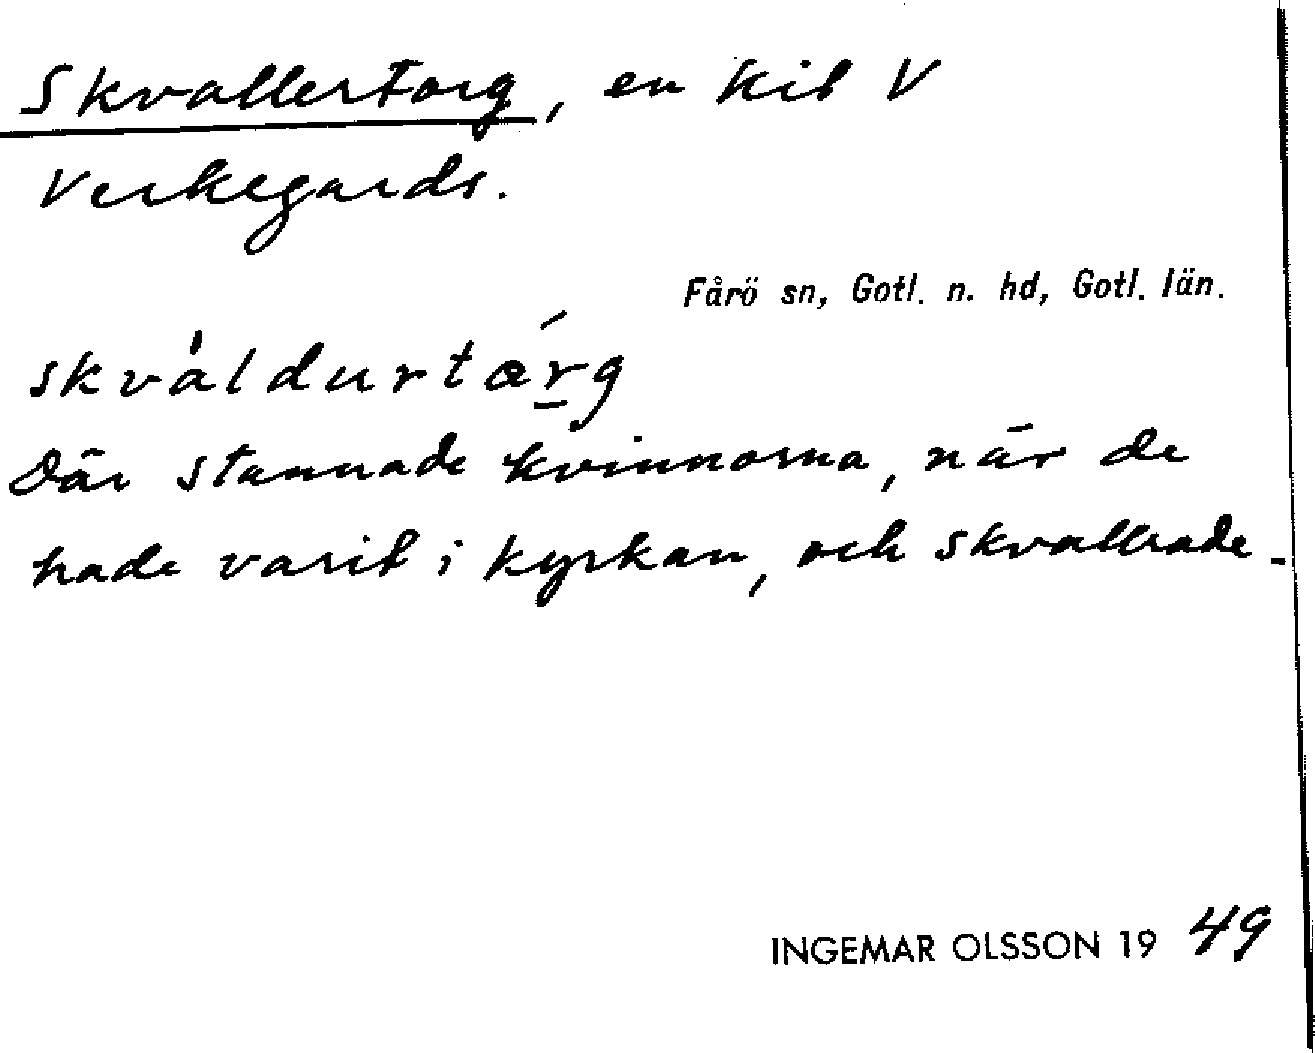 Skvallertorg, en kil V
Verkegards.
Fårö sn, Gotl. n. hd, Gotl. län.
skvàldurtæŕ̲g
Där stannade kvinnorna, när de
hade varit i kyrkan, och skvallrade.
INGEMAR OLSSON 19 49